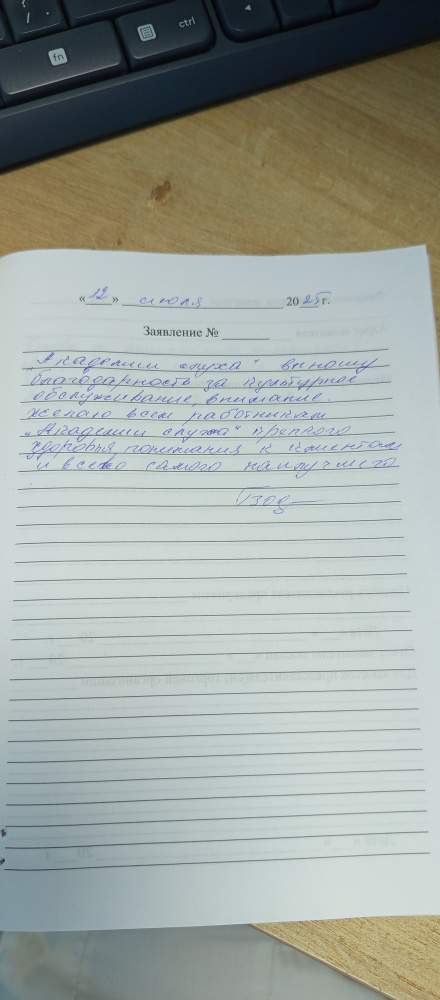 fn
ctrl
«12» июля 2025 г.
Заявление №
"Академии слуха" выношу
благодарность за культурное
обслуживание, внимание.
желаю всем работникам
„Академии слуха" крепкого
здоровья, понимания к клиентам
и всего самого наилучшего